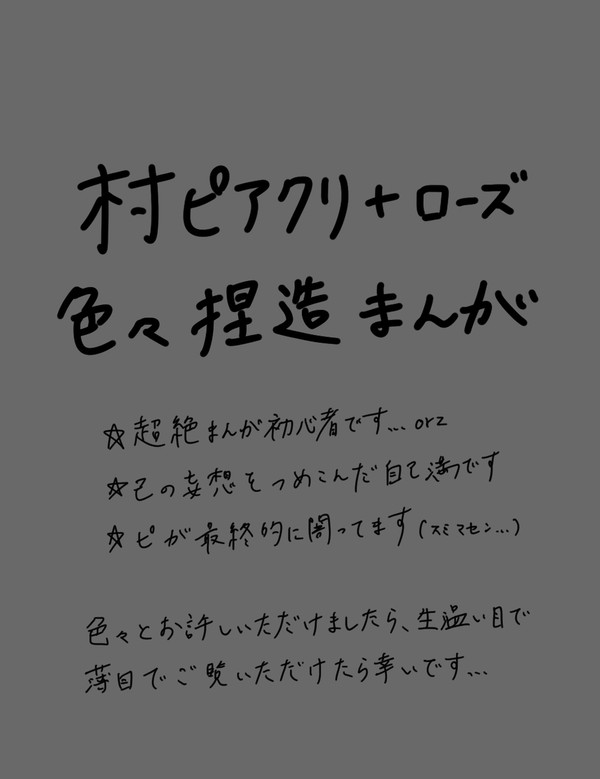 村ピアクリ+ローズ
色々捏造まんが
☆超絶まんが初心者です…orz
☆己の妄想をつめこんだ自己満です
☆ピが最終的に闇ってます(スミマセン…)
色々とお許しいただけましたら、生温い目で
薄目でご覧いただけたら幸いです…